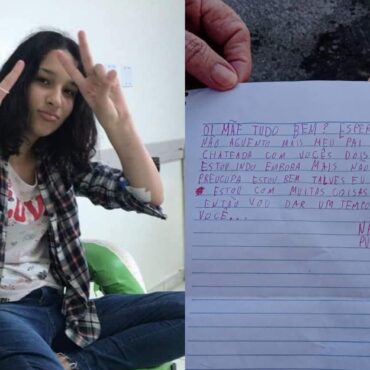 OI MÃE TUDO BEM? ESPER
NÃO AGUENTO MAIS MEU PAI
CHATEADA COM VOCÊS DOIS
ESTOU INDO EMBORA MAIS NÃO
PREOCUPA ESTOU BEM TALVES EU
ESTOU COM MUITAS COISAS
ENTÃO VOU DAR UM TEMPO
VOCÊ...